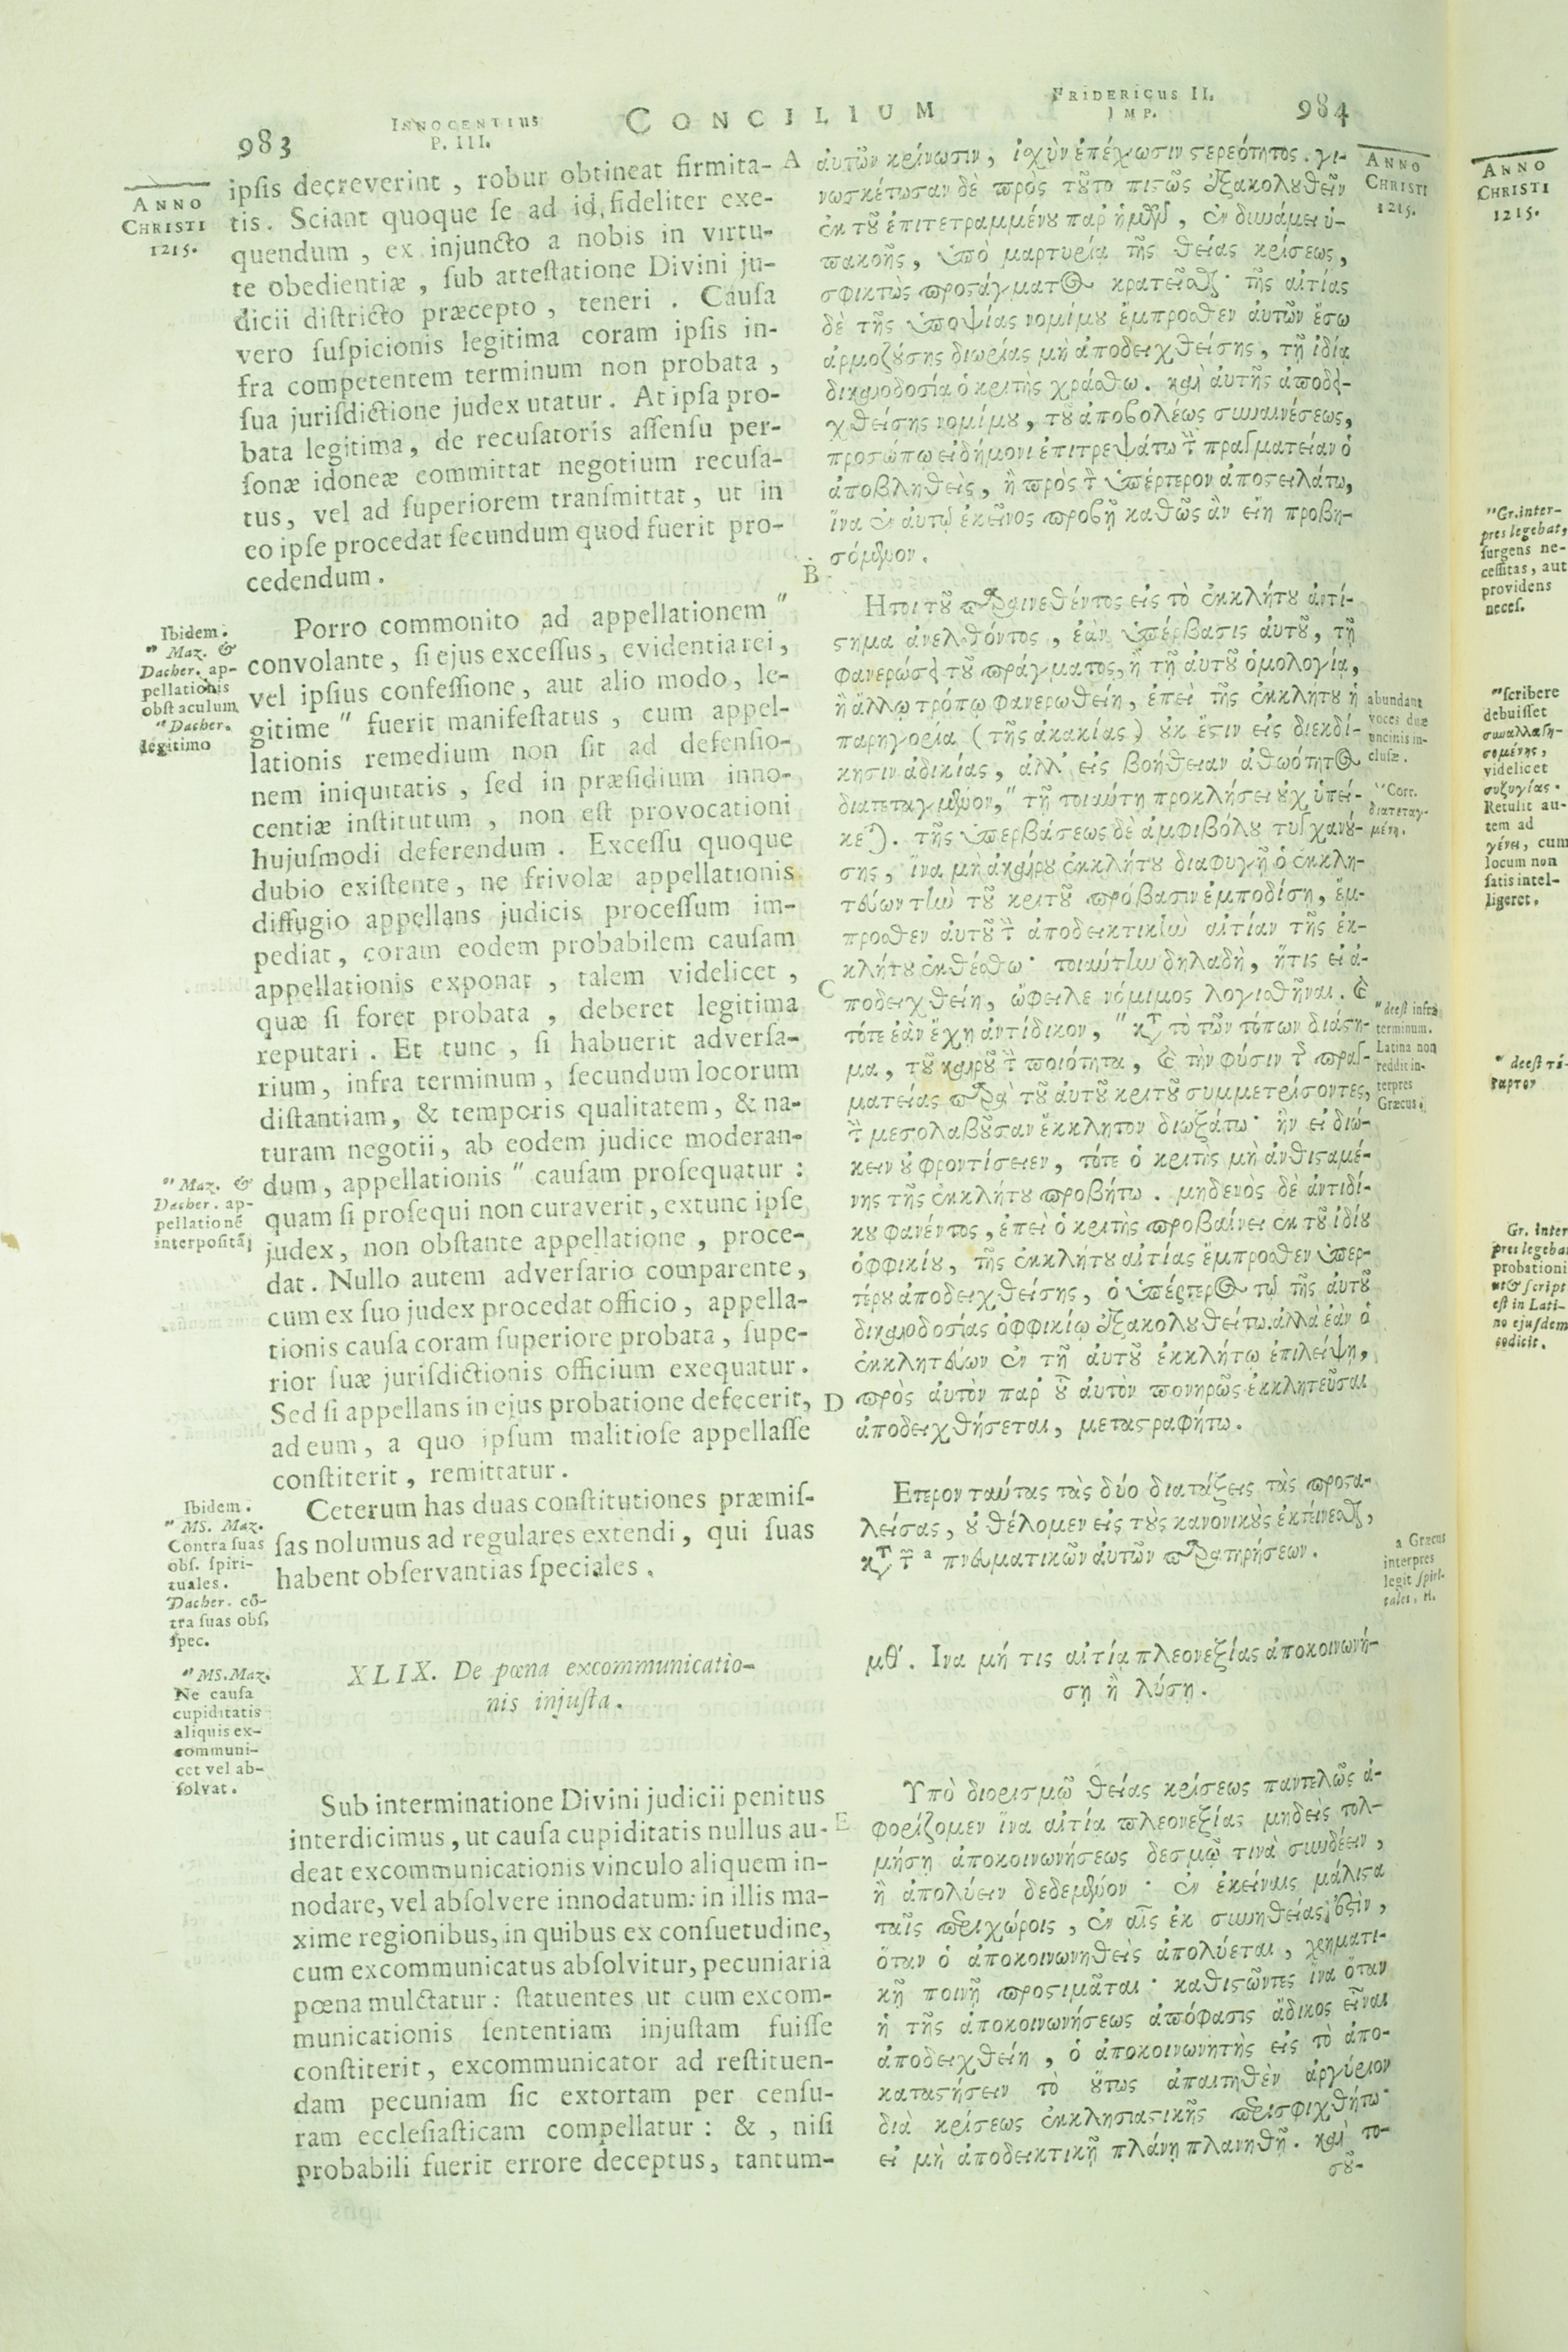 983
INNOCENTIUS
P. III.
CONCILIUM
FRIDERICUS II.
IMP.
984
ANNO
CHRISTI
1215.
ipsis decreverint, robur obtineat firmita-
tis. Sciant quoque se ad id, fideliter exe-
quendum, ex injuncto a nobis in virtu-
te obedientiæ, sub attestatione Divini ju-
dicii districto præcepto, teneri. Causa
vero suspicionis legitima coram ipsis in-
fra competentem terminum non probata,
sua jurisdictione judex utatur. At ipsa pro-
bata legitima, de recusatoris assensu per-
sonæ idoneæ committat negotium recusa-
tus, vel ad superiorem transmittat, ut in
eo ipse procedat secundum quod fuerit pro-
cedendum.
Porro commonito ad appellationem"
convolante, si ejus excessus, evidentia rei,
vel ipsius confessione, aut alio modo, le-
gitime" fuerit manifestatus, cum appel-
lationis remedium non sit ad defensio-
nem iniquitatis, sed in præsidium inno-
centiæ institutum, non est provocationi
hujusmodi deferendum. Excessu quoque
dubio existente, ne frivolæ appellationis
diffugio appellans judicis processum im-
pediat, coram eodem probabilem causam
appellationis exponat, talem videlicet,
quæ si foret probata, deberet legitima
reputari. Et tunc, si habuerit adversa-
rium, infra terminum, secundum locorum
distantiam, & temporis qualitatem, & na-
turam negotii, ab eodem judice moderan-
dum, appellationis" causam prosequatur:
quam si prosequi non curaverit, extunc ipse
judex, non obstante appellatione, proce-
dat. Nullo autem adversario comparente,
cum ex suo judex procedat officio, appella-
tionis causa coram superiore probata, supe-
rior suæ jurisdictionis officium exequatur.
Sed si appellans in ejus probatione defecerit,
ad eum, a quo ipsum malitiose appellasse
constiterit, remittatur.
Ceterum has duas constitutiones præmis-
sas nolumus ad regulares extendi, qui suas
habent observantias speciales.
XLIX. De pœna excommunicatio-
nis injusta.
Sub interminatione Divini judicii penitus
interdicimus, ut causa cupiditatis nullus au-
deat excommunicationis vinculo aliquem in-
nodare, vel absolvere innodatum: in illis ma-
xime regionibus, in quibus ex consuetudine,
cum excommunicatus absolvitur, pecuniaria
pœna mulctatur: statuentes ut cum excom-
municationis sententiam injustam fuisse
constiterit, excommunicator ad restituen-
dam pecuniam sic extortam per censu-
ram ecclesiasticam compellatur: &, nisi
probabili fuerit errore deceptus, tantum-
Ibidem.
" Maz. &
Dacher. ap-
pellationis
obstaculum
" Dacher.
legitimo
" Maz. &
Dacher. ap-
pellationē
interpositā
Ibidem.
" MS. Maz.
Contra suas
obs. spiri-
tuales.
Dacher. cō-
tra suas obs.
spec.
" MS. Maz.
Ne causa
cupiditatis
aliquis ex-
communi-
cet vel ab-
solvat.
A
B
C
D
E
αὐτῶν κρίνωσιν, ἰσχὺν ἐπέχωσιν στερεότητος. γι-
νωσκέτωσαν δὲ πρὸς τοῦτο πιστῶς ἐξακολουθεῖν
ἐκ τοῦ ἐπιτετραμμένου παρ' ἡμῶν, ἐν δυνάμει ὑ-
πακοῆς, ὑπὸ μαρτυρίᾳ τῆς θείας κρίσεως,
σφικτῶς προστάγματος κρατεῖσθαι· τῆς αἰτίας
δὲ τῆς ὑποψίας νομίμου ἔμπροσθεν αὐτῶν ἔσω
ἁρμοζούσης διωρίας μὴ ἀποδειχθείσης, τῇ ἰδίᾳ
δικαιοδοσίᾳ ὁ κριτὴς χράσθω. καὶ αὐτῆς ἀποδει-
χθείσης νομίμου, τοῦ ἀποβολέως συναινέσεως,
προσώπῳ εἰδήμονι ἐπιτρεψάτω τὴν πραγματείαν ὁ
ἀποβληθεὶς, ἢ πρὸς τὸν ὑπέρτερον ἀποστειλάτω,
ἵνα ἐν αὐτῷ ἐκεῖνος προβῇ καθὼς ἂν εἴη προβη-
σόμενον.
Ητοι τοῦ παραινεθέντος εἰς τὸ ἐκκλήτου ἀντί-
στημα ἀνελθόντος, ἐὰν ὑπέρβασις αὐτοῦ, τῇ
φανερώσει τοῦ πράγματος, ἢ τῇ αὐτοῦ ὁμολογίᾳ,
ἢ ἄλλῳ τρόπῳ φανερωθείη, ἐπεὶ τῆς ἐκκλήτου ἡ
παρηγορία (τῆς ἀκακίας) οὐκ ἔστιν εἰς διεκδί-
κησιν ἀδικίας, ἀλλ' εἰς βοήθειαν ἀθωότητος
διατεταγμένον," τῇ τοιαύτῃ προκλήσει οὐχ ὑπεί-
κεται. τῆς ὑπερβάσεως δὲ ἀμφιβόλου τυγχανού-
σης, ἵνα μὴ ἀκαίρου ἐκκλήτου διαφυγῇ ὁ ἐκκλη-
τεύων τὴν τοῦ κριτοῦ πρόβασιν ἐμποδίσῃ, ἔμ-
προσθεν αὐτοῦ τὴν ἀποδεικτικὴν αἰτίαν τῆς ἐκ-
κλήτου ἐκθέσθω· τοιαύτην δηλαδὴ, ἥτις εἰ ἀ-
ποδειχθείη, ὤφειλε νόμιμος λογισθῆναι. καὶ
τότε ἐὰν ἔχῃ ἀντίδικον, " κατὰ τὸ τῶν τόπων διάστη-
μα, τοῦ καιροῦ τὴν ποιότητα, καὶ τὴν φύσιν τῆς πραγ-
ματείας παρὰ τοῦ αὐτοῦ κριτοῦ συμμετρίσοντες,
τὴν μεσολαβοῦσαν ἔκκλητον διωξάτω· ἣν εἰ διώ-
κειν οὐ φροντίσειεν, τότε ὁ κριτὴς μὴ ἀνθισταμέ-
νης τῆς ἐκκλήτου προβήτω. μηδενὸς δὲ ἀντιδί-
κου φανέντος, ἐπεὶ ὁ κριτὴς προβαίνει ἐκ τοῦ ἰδίου
ὀφφικίου, τῆς ἐκκλήτου αἰτίας ἔμπροσθεν ὑπερ-
τέρου ἀποδειχθείσης, ὁ ὑπέρτερος τῷ τῆς αὐτοῦ
δικαιοδοσίας ὀφφικίῳ ἐξακολουθείτω. ἀλλὰ ἐὰν ὁ
ἐκκλητεύων ἐν τῇ αὐτοῦ ἐκκλήτῳ ἐπιλείψῃ,
πρὸς αὐτὸν παρ' οὗ αὐτὸν πονηρῶς ἐκκλητεῦσαι
ἀποδειχθήσεται, μεταστραφήτω.
Ετερον ταύτας τὰς δύο διατάξεις τὰς προστα-
λείσας, οὐ θέλομεν εἰς τοὺς κανονικοὺς ἐκτείνεσθαι,
κατὰ τῶν a πνευματικῶν αὐτῶν παρατηρήσεων.
μθ'. Ινα μή τις αἰτίᾳ πλεονεξίας ἀποκοινωνή-
σῃ ἢ λύσῃ.
Υπὸ διορισμῷ θείας κρίσεως παντελῶς ἀ-
φορίζομεν ἵνα αἰτίᾳ πλεονεξίας μηδεὶς τολ-
μήσῃ ἀποκοινωνήσεως δεσμῷ τινὰ συνδέειν,
ἢ ἀπολύειν δεδεμένον· ἐν ἐκείναις μάλιστα
ταῖς περιχώροις, ἐν αἷς ἐκ συνηθείας ἐστὶν,
ὅταν ὁ ἀποκοινωνηθεὶς ἀπολύεται, χρηματι-
κῇ ποινῇ προστιμᾶται· καθιστῶντες ἵνα ὅταν
ἡ τῆς ἀποκοινωνήσεως ἀπόφασις ἄδικος εἶναι
ἀποδειχθείη, ὁ ἀποκοινωνητὴς εἰς τὸ ἀπο-
καταστήσειν τὸ οὕτως ἀπαιτηθὲν ἀργύριον
διὰ κρίσεως ἐκκλησιαστικῆς περισφιχθήτω·
εἰ μὴ ἀποδεικτικῇ πλάνῃ πλανηθῇ. καὶ το-
σοῦ-
ANNO
CHRISTI
1215.
abundant
voces duæ
uncinis in-
clusæ.
" Corr.
διατεταγ-
μένη.
" deest infra
terminum.
Latina non
reddit in-
terpres
Græcus.
a Græcus
interpres
legit spiri-
tales, H.
ANNO
CHRISTI
1215.
"Gr. inter-
pres legebat,
surgens ne-
cessitas, aut
providens
neces.
"scribere
debuisset
συναλλαγη-
σομένης,
videlicet
συζυγίας.
Retulit au-
tem ad
γένει, cum
locum non
satis intel-
ligeret.
" deest τέ-
ταρτον
Gr. inter
pres legebat
probationi
ut & script
est in Lati-
no ejusdem
codicit.